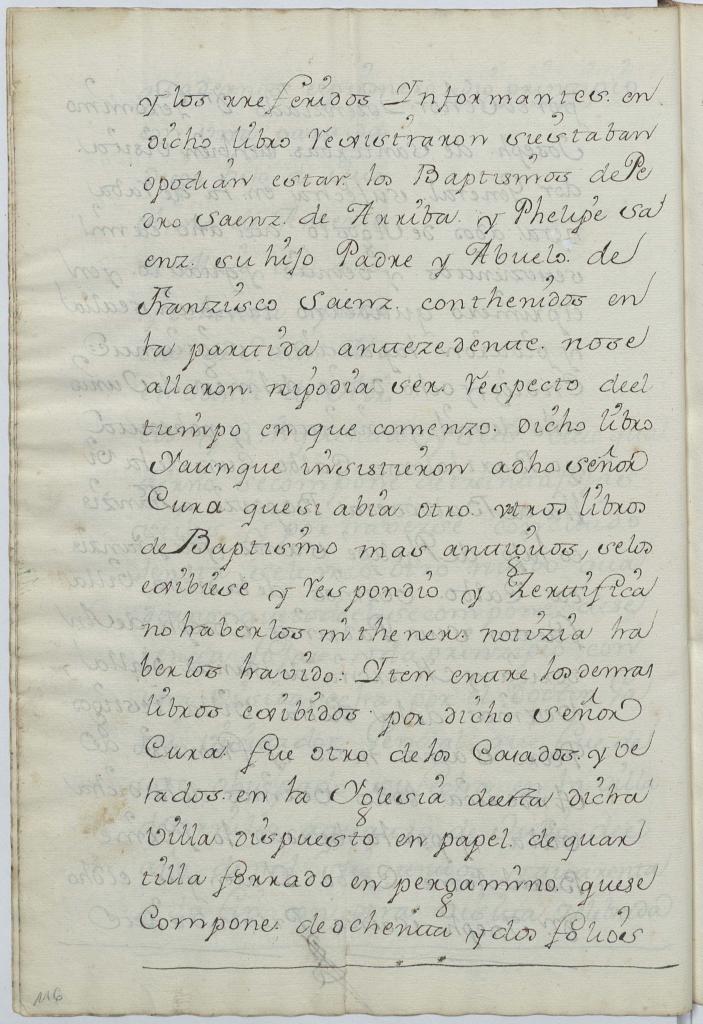 y los rreferidos Informantes. en
dicho libro Rexistraron siestaban
opodian estar. los Baptismos de Pe
dro Saenz. de Arriba. y Phelipe Sa
enz. su hijo Padre y Abuelo. de
Franzisco Saenz. conthenidos en
la parttida anttezedentte. nose
allaron. nipodia ser. Respecto deel
tiempo en que comenzo. dicho libro
Yaunque insistieron adho señor
Cura quesi abia otro. u otros libros
de Baptismo mas anttiguos, selos
exibiese y Respondio y Zerttifica
nohaberlos ni thener. notizia ha
berlos havido: Iten enttre losdemas
libros exibidos por dicho señor
Cura. fue otro de los Casados. y Ve
lados. en la Yglesia deesta dicha
Villa dispuesto en papel. de quar
tilla forrado en pergamino. quese
Compone. deochentta y dos folios
116